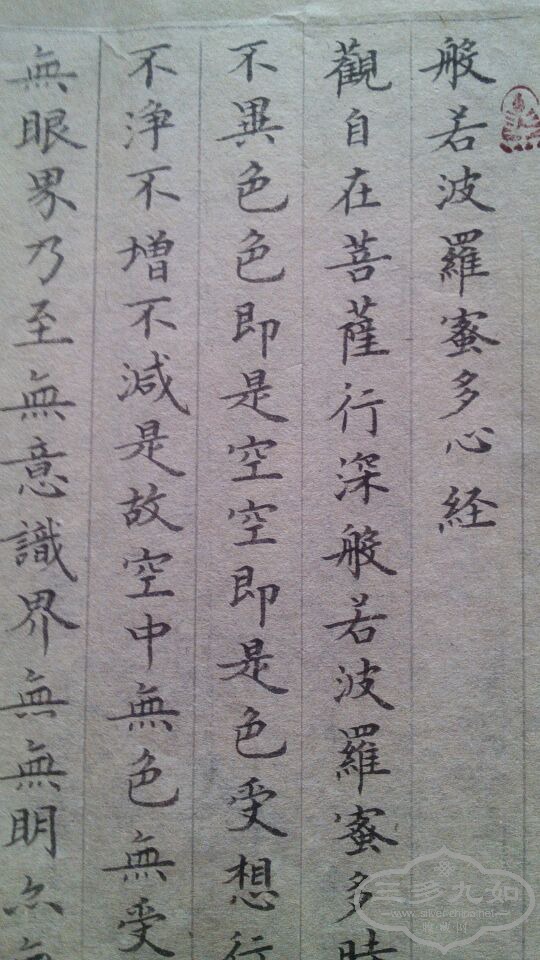 般若波羅蜜多心経
觀自在菩薩行深般若波羅蜜多時
不異色色即是空空即是色受想行
不淨不増不減是故空中無色無受
無眼界乃至無意識界無無明亦無
三多九如
www.silver-china.net
收藏閣